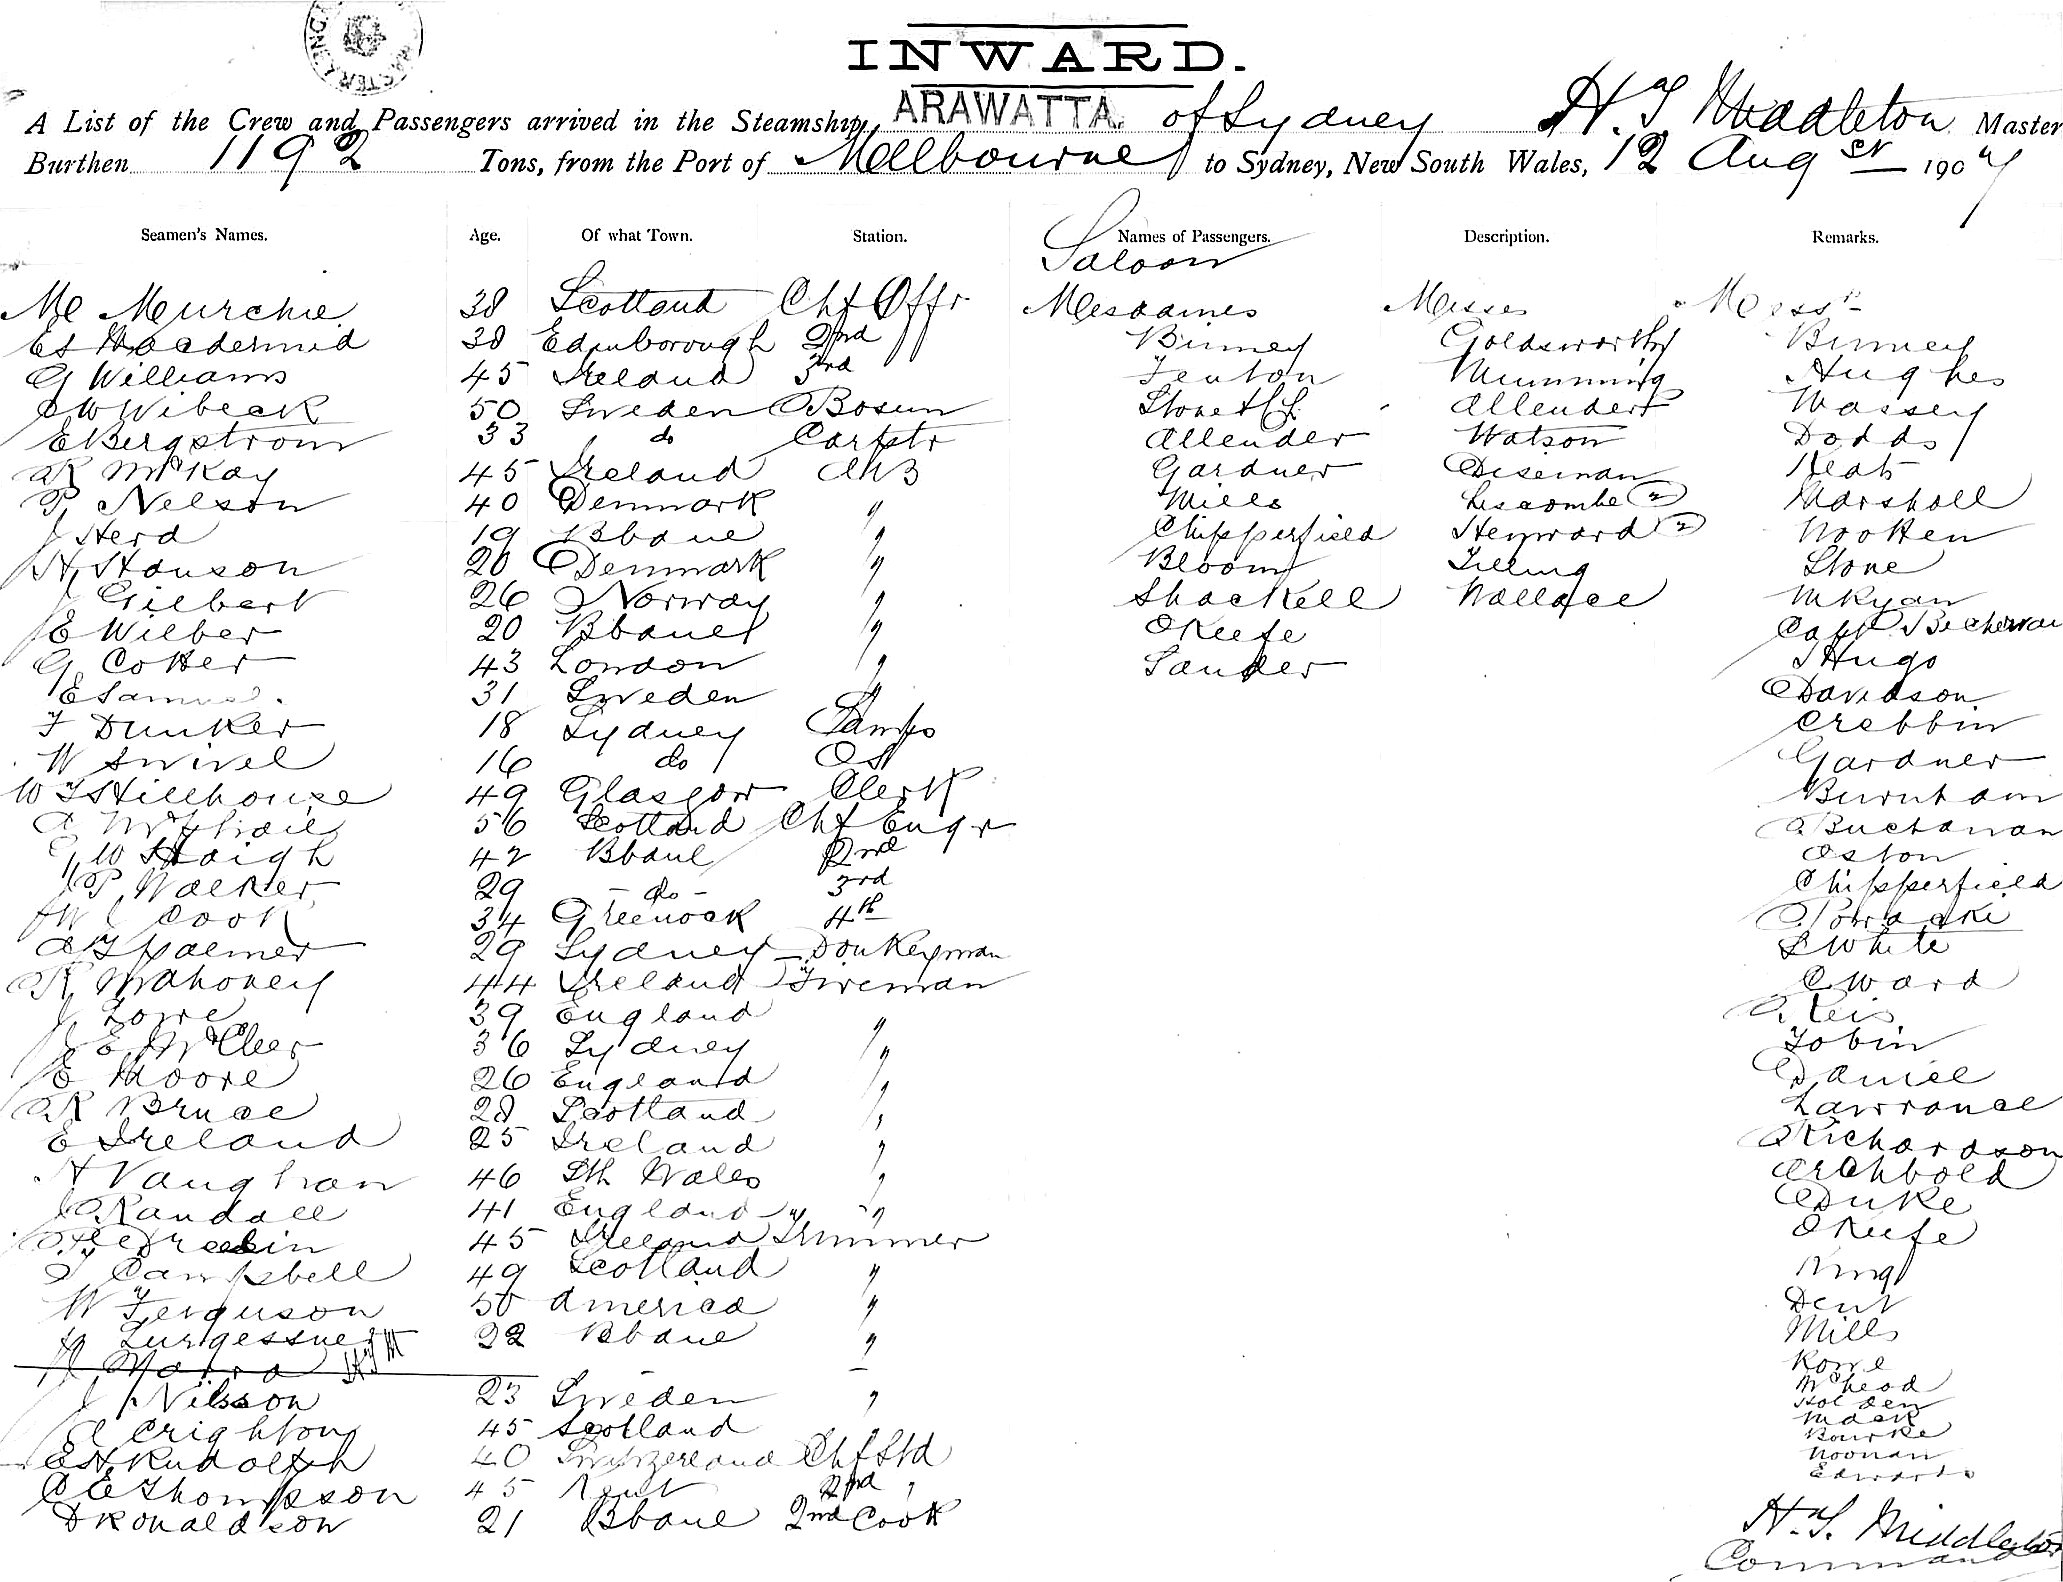 INWARD.
A List of the Crew and Passengers arrived in the Steamship ARAWATTA. of Sydney H. T Middleton Master
Burthen 1192 Tons, from the Port of Melbourne to Sydney, New South Wales, 12 Augst 1904
Seamen's Names. Age. Of what Town. Station. Names of Passengers. Description. Remarks.
Saloon
Mc Murchie 38 Scotland Chf Offr Mesdames Misses Messrs
38 Edinborough 2nd Binney Goldsworthy Binney
G Williams 45 Ireland 3rd Fenton Mumming Hughes
Wibeck 50 Sweden Bosun Stone & Allender Massey
E Bergstrom 33 do Carptr Allender Watson Dodds
R McKay 45 Ireland AB Gardner Diseman Keats
P. Nelson 40 Denmark " Mills Liscombe (2) Marshall
J Herd 19 Bbane " Chipperfield Heyward (2) Wooften
H. Hanson 20 Denmark " Bloom Tilling Stone
J Gilbert 26 Norway " Shackell Wallace McKyan
E Wilber 20 Bbane " OKeefe Capt
G Cotter 43 London " Sander Hugo
E 31 Sweden " Davidson
F Dunker 18 Sydney Lamps Crebbin
W Swivel 16 do OS Gardner
W T Hillhouse 49 Glasgow Clerk Burnham
A McPhail 56 Scotland Chf Engr Buchanan
G W Haigh 42 Bbane 2nd Oston
J P. Walker 29 - do - 3rd Chipperfield
W J Cook 34 Greenock 4th
A T Palmer 29 Sydney Donkeyman S White
R Mahoney 44 Ireland Fireman C Ward
J Lowe 39 England "
J E McCleer 36 Sydney " Tobin
E Moore 26 England " Daniel
R Bruce 28 Scotland " Lawrance
E Ireland 25 Ireland " Richardson
H Vaughan 46 Sth Wales " Archbold
J Randall 41 England " Duke
45 Ireland Trimmer OKeefe
J Campbell 49 Scotland " King
W Ferguson 50 America " Dent
22 Bbane " Mills
H Marra HTM Rowe
J. Nilsson 23 Sweden " McLeod
Holden
A Crighton 45 Scotland Mack
Bourke
E H Rudolph 40 Switzerland Chf Std Noonan
C E Thompson 45 Kent 2nd " Edwards
D Ronaldson 21 Bbane 2nd Cook
H. T. Middleton
Commander